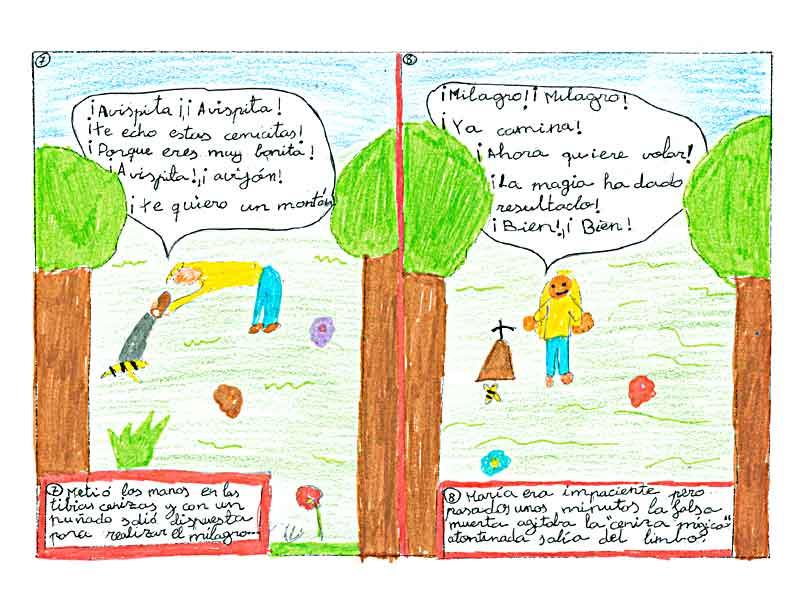 7
¡Avispita ¡¡Avispita!
¡te echo estas cenicitas!
¡Porque eres muy bonita!
¡Avispita!, ¡avijón!
¡te quiero un montón
7 Metió las manos en las
tibias cenizas y con un
puñado salió dispuesta
para realizar el milagro...
8
¡Milagro! ¡Milagro!
¡Ya camina!
¡Ahora quiere volar!
¡La magia ha dado
resultado!
¡Bien!, ¡Bien!
8 María era impaciente pero
pasados unos minutos la falsa
muerta agitaba la "ceniza mágica"
atontinada salía del limbo?